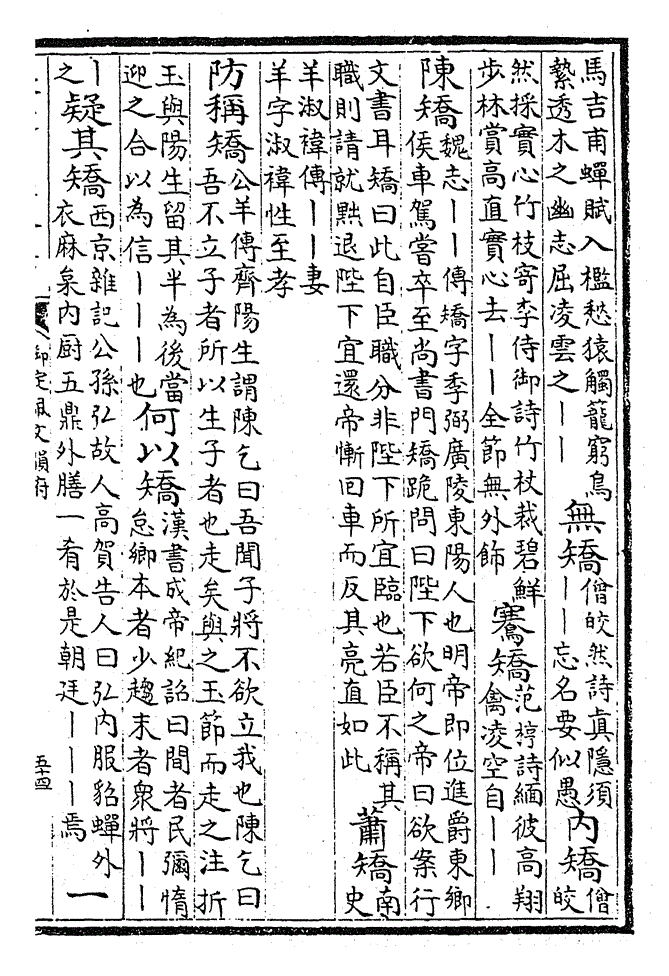 馬吉甫蟬賦入檻愁猿觸籠窮鳥
縶透木之幽志屈凌雲之丨丨
無矯
僧皎然詩真隱須
丨丨忘名要似愚
內矯
僧
皎
然採實心竹枝寄李侍御詩竹杖裁碧鮮
步林賞高直實心去丨丨全節無外飾
騫矯
范梈詩緬彼高翔
禽凌空自丨丨
陳矯
魏志丨丨傳矯字季弼廣陵東陽人也明帝即位進爵東鄉
侯車駕嘗卒至尚書門矯跪問曰陛下欲何之帝曰欲案行
文書耳矯曰此自臣職分非陛下所宜臨也若臣不稱其
職則請就黜退陛下宜還帝慚回車而反其亮直如此
蕭矯
南
史
羊淑禕傳丨丨妻
羊字淑禕性至孝
防稱矯
公羊傳齊陽生謂陳乞曰吾聞子將不欲立我也陳乞曰
吾不立子者所以生子者也走矣與之玉節而走之注折
玉與陽生留其半為後當
迎之合以為信丨丨丨也
何以矯
漢書成帝紀詔曰間者民彌惰
怠鄉本者少趨末者衆將丨丨
丨
之
疑其矯
西京雜記公孫弘故人高賀告人曰弘內服貂蟬外
衣麻枲內厨五鼎外膳一肴於是朝廷丨丨丨焉
一
御定佩文韻府
五十四